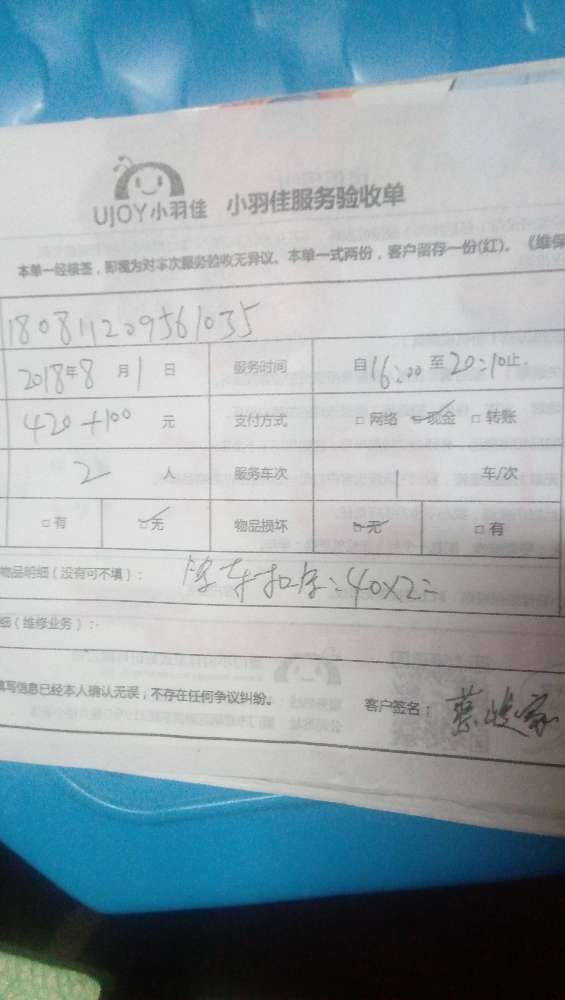 UJOY小羽佳 小羽佳服务验收单
本单一经核签，即视为对本次服务验收无异议。本单一式两份，客户留存一份(红)。《维保
180811209561035
2018年8月1日 服务时间 自16:00至20:10止
420+100元 支付方式 □网络 ☑现金 □转账
2人 服务车次 1车/次
□有 ☑无 物品损坏 ☑无 □有
物品明细（没有可不填）： 40×2=
细（维修业务）：
填写信息已经本人确认无误，不存在任何争议纠纷。 客户签名：蔡